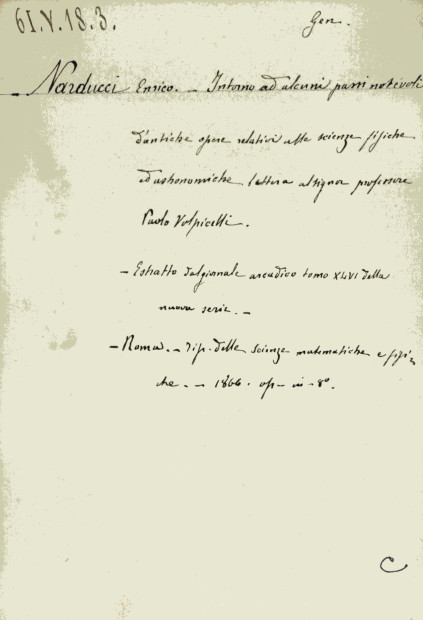 61.V.18.3.
Gen.
Narducci Enrico. - Intorno ad alcuni passi notevoli
d'antiche opere relativi alle scienze fisiche
ed astronomiche lettera al signor professore
Paolo Volpicelli.
- Estratto dal giornale arcadico tomo XLVI della
nuova serie. -
- Roma. - Tip. delle scienze matematiche e fisi-
che. - 1866. op. in-8º.
C